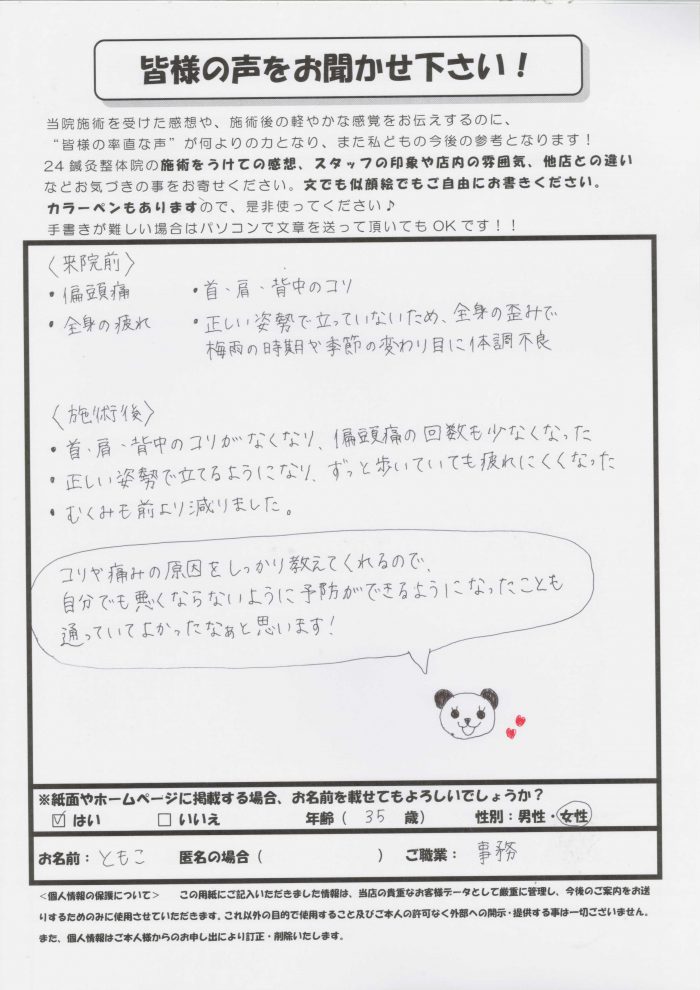 皆様の声をお聞かせ下さい！
当院施術を受けた感想や、施術後の軽やかな感覚をお伝えするのに、
“皆様の率直な声”が何よりの力となり、また私どもの今後の参考となります！
24鍼灸整体院の施術をうけての感想、スタッフの印象や店内の雰囲気、他店との違い
などお気づきの事をお寄せください。文でも似顔絵でもご自由にお書きください。
カラーペンもありますので、是非使ってください♪
手書きが難しい場合はパソコンで文章を送って頂いてもOKです！！
〈来院前〉
・偏頭痛 ・首・肩・背中のコリ
・全身の疲れ ・正しい姿勢で立っていないため、全身の歪みで
梅雨の時期や季節の変わり目に体調不良
〈施術後〉
・首・肩・背中のコリがなくなり、偏頭痛の回数も少なくなった
・正しい姿勢で立てるようになり、ずっと歩いていても疲れにくくなった
・むくみも前より減りました。
コリや痛みの原因をしっかり教えてくれるので、
自分でも悪くならないように予防ができるようになったことも
通っていてよかったなぁと思います！
※紙面やホームページに掲載する場合、お名前を載せてもよろしいでしょうか？
☑ はい □ いいえ 年齢（ 35 歳） 性別：男性・女性
お名前：ともこ 匿名の場合（ ） ご職業： 事務
＜個人情報の保護について＞ この用紙にご記入いただきました情報は、当店の貴重なお客様データとして厳重に管理し、今後のご案内をお送
りするためのみに使用させていただきます。これ以外の目的で使用すること及びご本人の許可なく外部への開示・提供する事は一切ございません。
また、個人情報はご本人様からのお申し出により訂正・削除いたします。